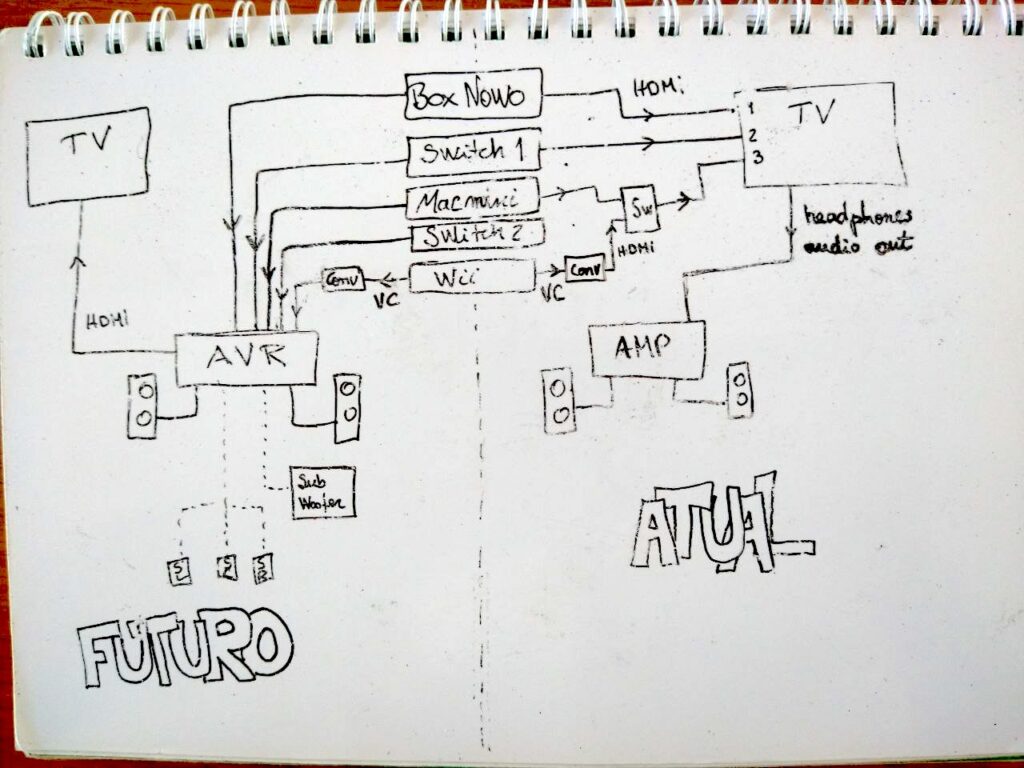 Box Nowo
HDMi
TV
TV
1
2
3
Switch 1
Macmini
Sw
Switch 2
HDMi
Conv
Wii
Conv
VC
VC
headphones
audio out
HDMi
AVR
AMP
Sub
Woofer
ATUAL
FUTURO